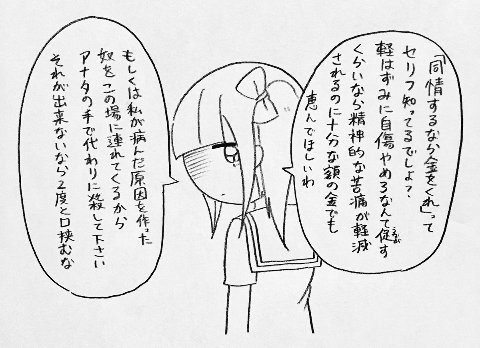 「同情するなら金をくれ」って
セリフ知ってるでしょ？
軽はずみに自傷やめろなんて促す
くらいなら精神的な苦痛が軽減
されるのに十分な額の金でも
恵んでほしいわ
もしくは私が病んだ原因を作った
奴をこの場に連れてくるから
アナタの手で代わりに殺して下さい
それが出来ないなら2度と口挟むな